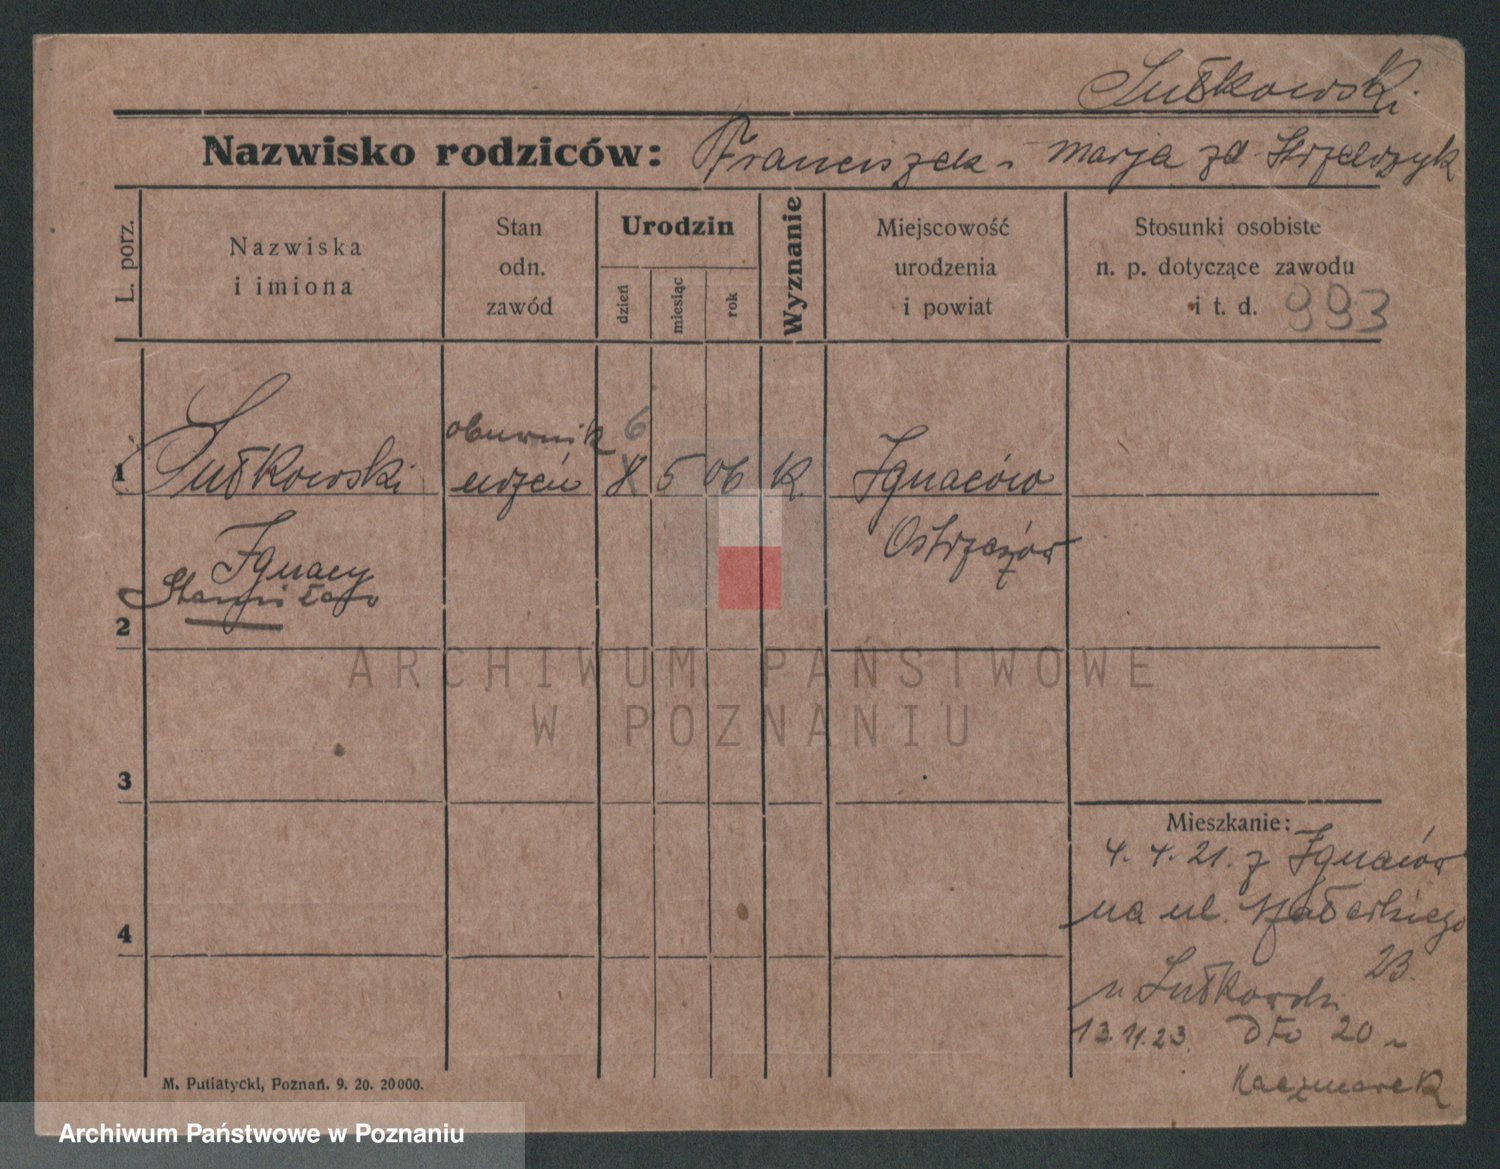 Sułkowski
Nazwisko rodziców: Franciszek i Marja zd. Strzelczyk
L. porz.
Nazwiska
i imiona
Stan
odn.
zawód
Urodzin
dzień
miesiąc
rok
Wyznanie
Miejscowość
urodzenia
i powiat
Stosunki osobiste
n. p. dotyczące zawodu
i t. d. 993
6
1 Sułkowski uczeń 8 5 06 K. Ignaców
Ignacy Ostrzeszów
Stanisław
2
3
4
Mieszkanie:
4. 4. 21. z Ignaców
na ul.
23.
u Sułkowski
13. 11. 23. dto 20
Kaczmarek
M. Putiatycki, Poznań. 9. 20. 20000.
ARCHIWUM PAŃSTWOWE
W POZNANIU
Archiwum Państwowe w Poznaniu